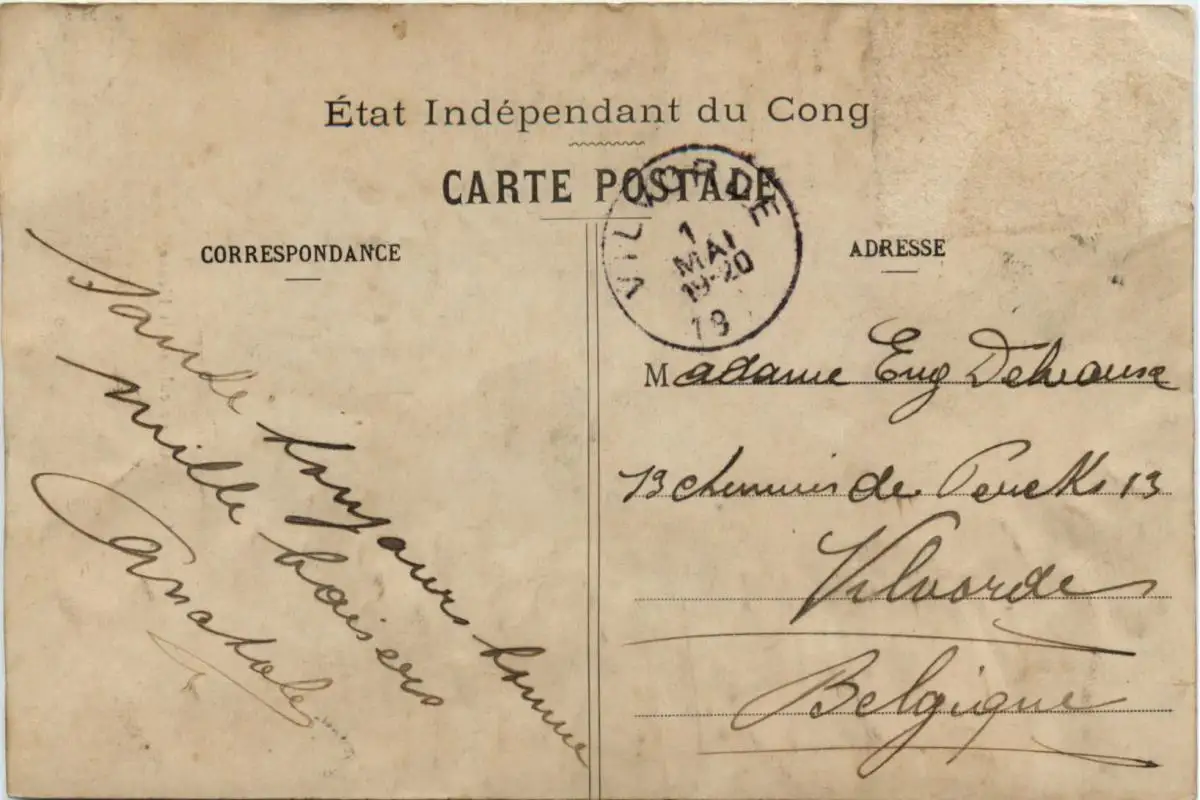 État Indépendant du Cong
CARTE POSTALE
VILVORDE
1
MAI
19-20
19
CORRESPONDANCE
Santé toujours bonne
mille baisers
Anatole
ADRESSE
Madame Eug
13 chemin de Perck 13
Vilvorde
Belgique